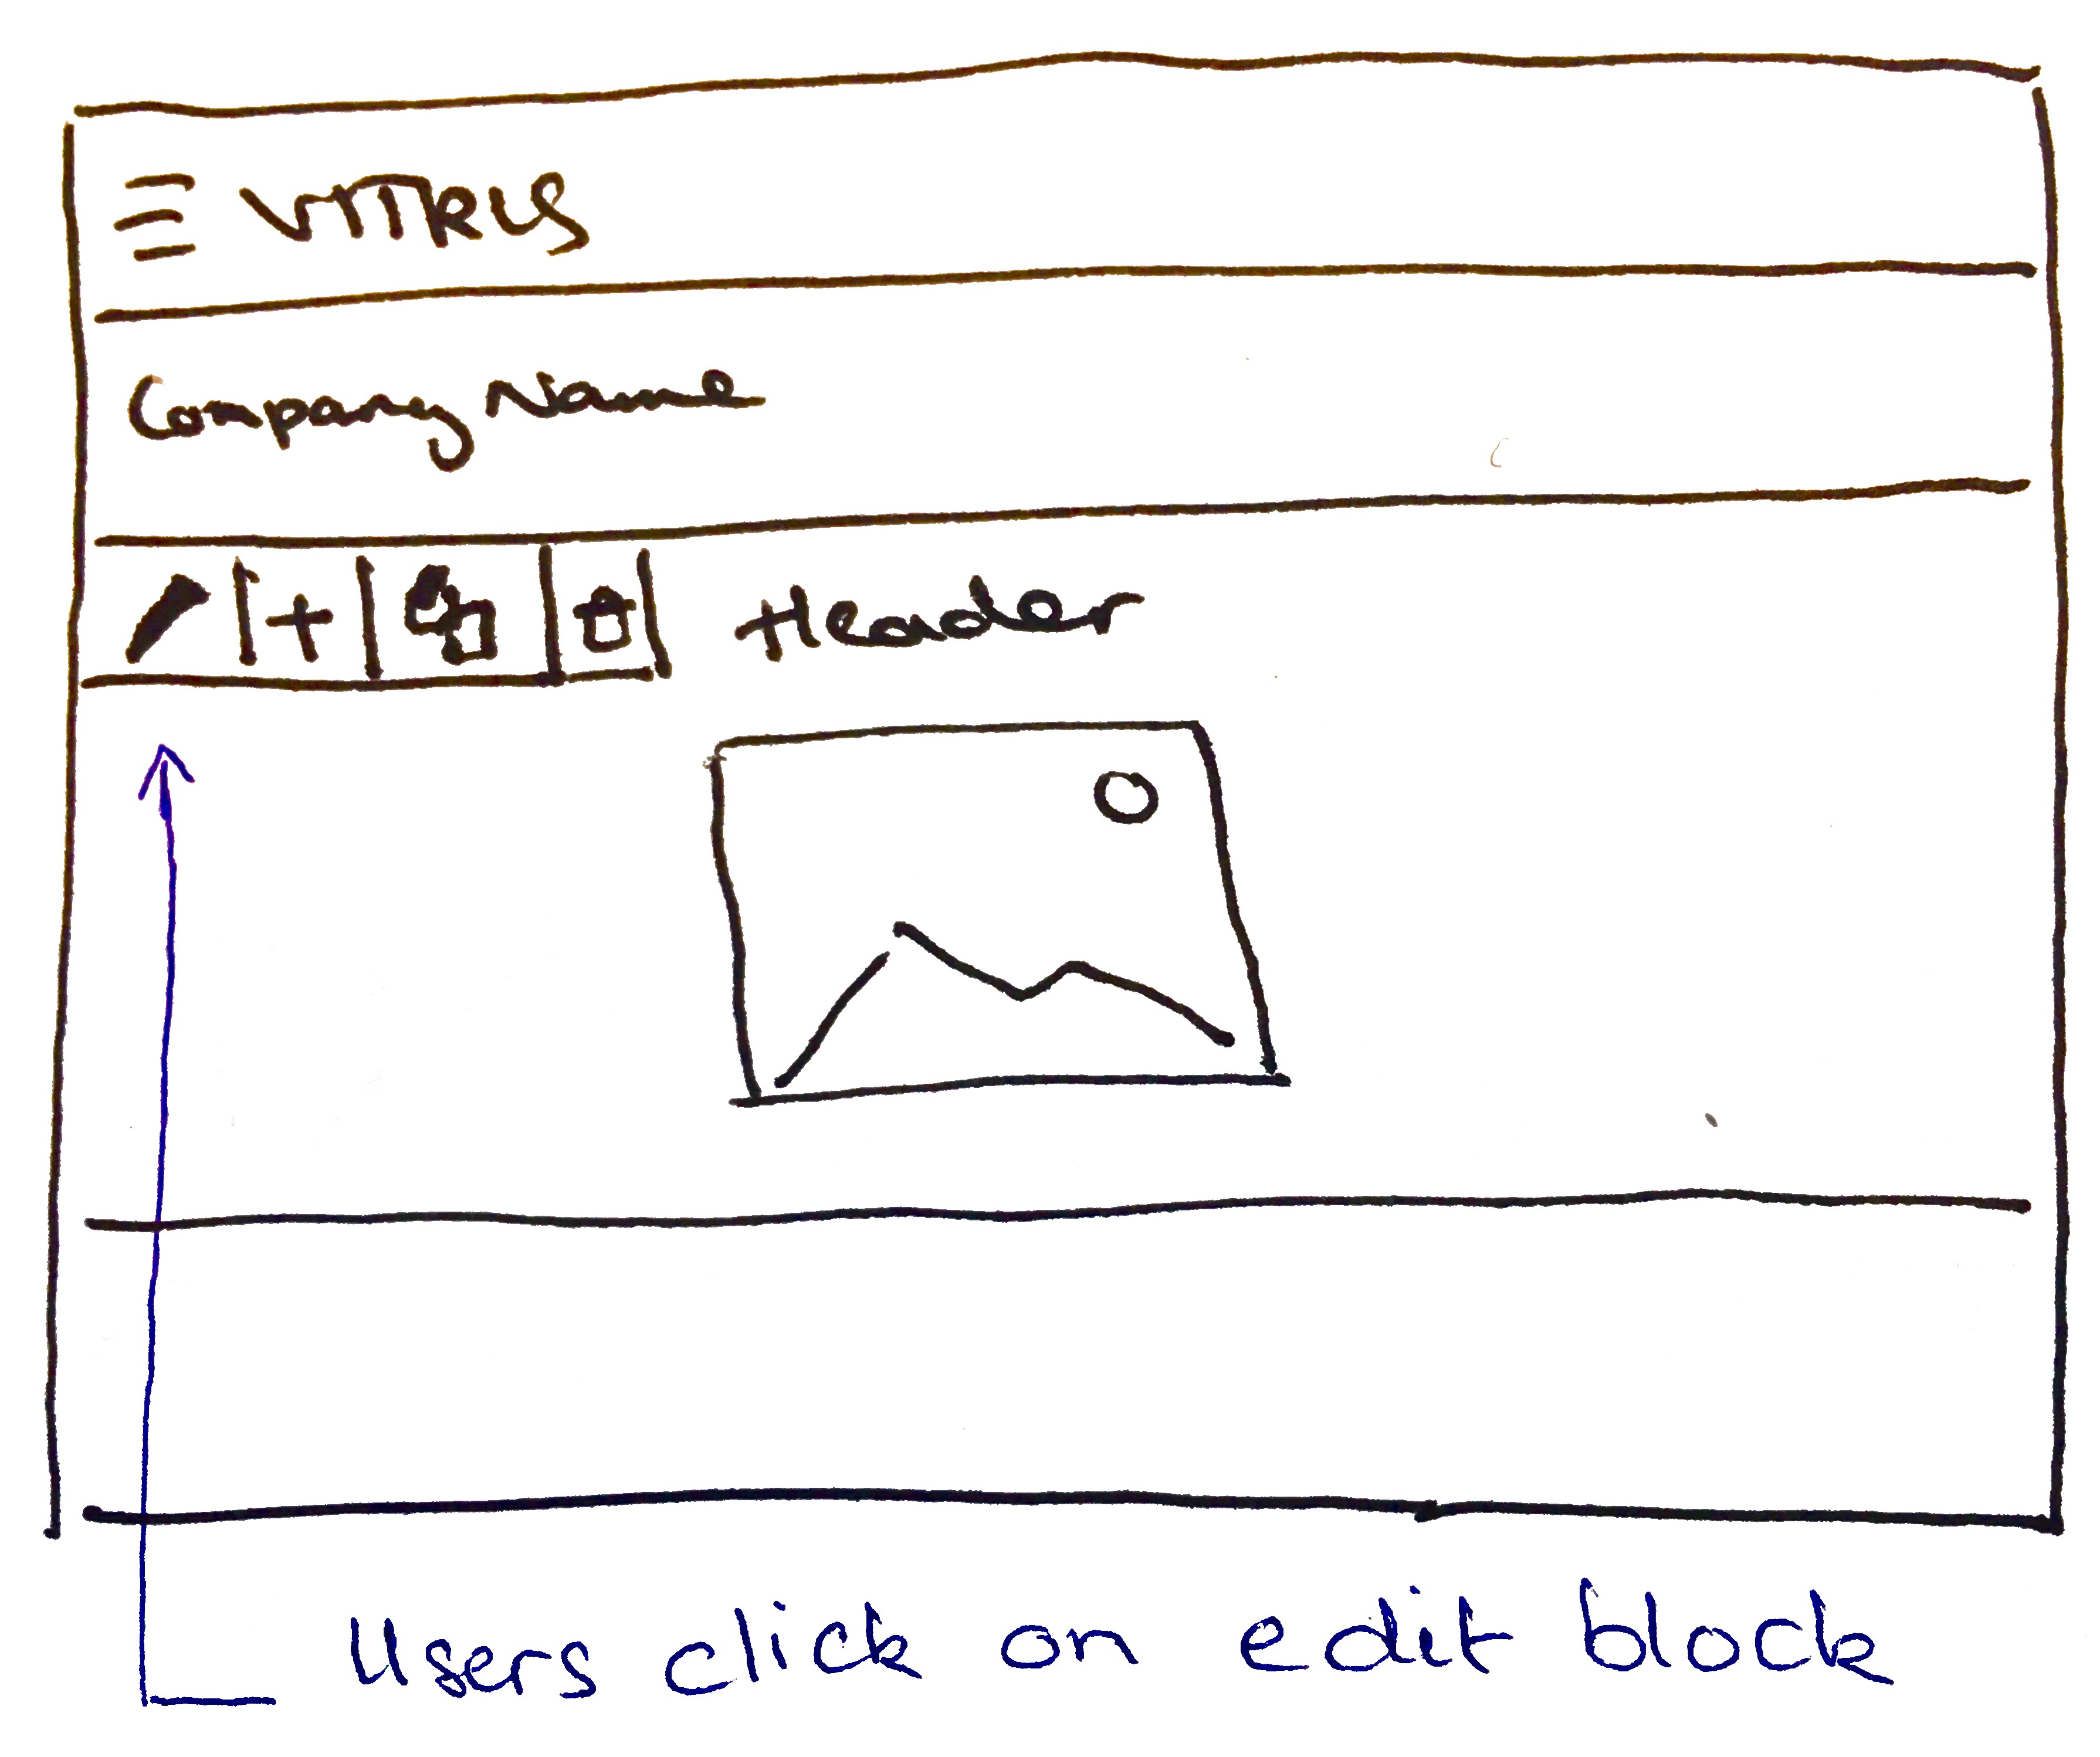 Company Name
Header
Users click on edit block